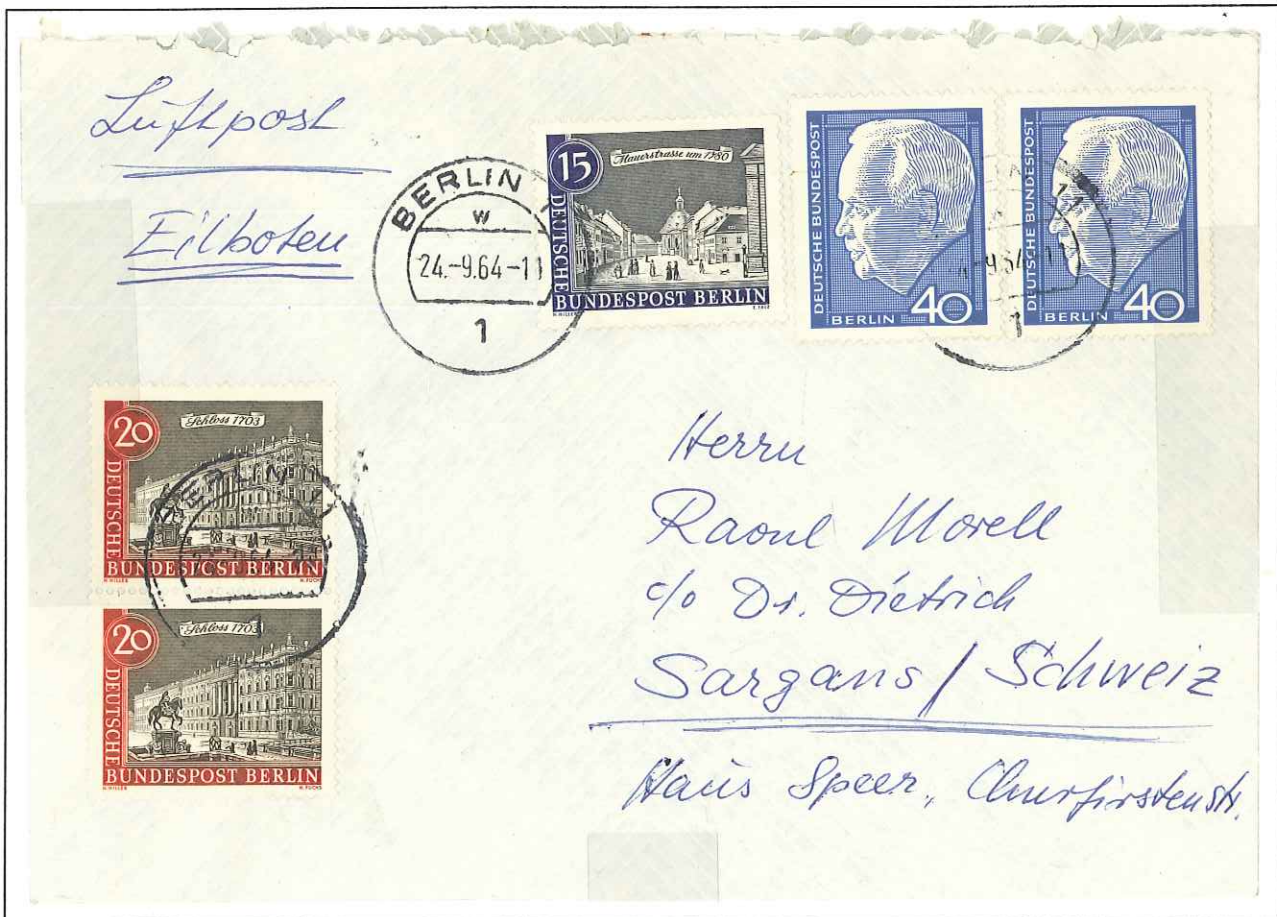 Luftpost
Eilboten
15
Mauerstrasse um 1780
DEUTSCHE
BUNDESPOST BERLIN
BERLIN
w
24.-9.64-11
1
DEUTSCHE BUNDESPOST
BERLIN 40
DEUTSCHE BUNDESPOST
BERLIN 40
11
1
20
Schloss 1703
DEUTSCHE
BUNDESPOST BERLIN
H.HILLER
BERLIN
20
Schloss 1703
DEUTSCHE
BUNDESPOST BERLIN
H.HILLER
H.FUCHS
Herrn
Raoul Morell
c/o Dr. Dietrich
Sargans / Schweiz
Haus Speer, Churfirstenstr.